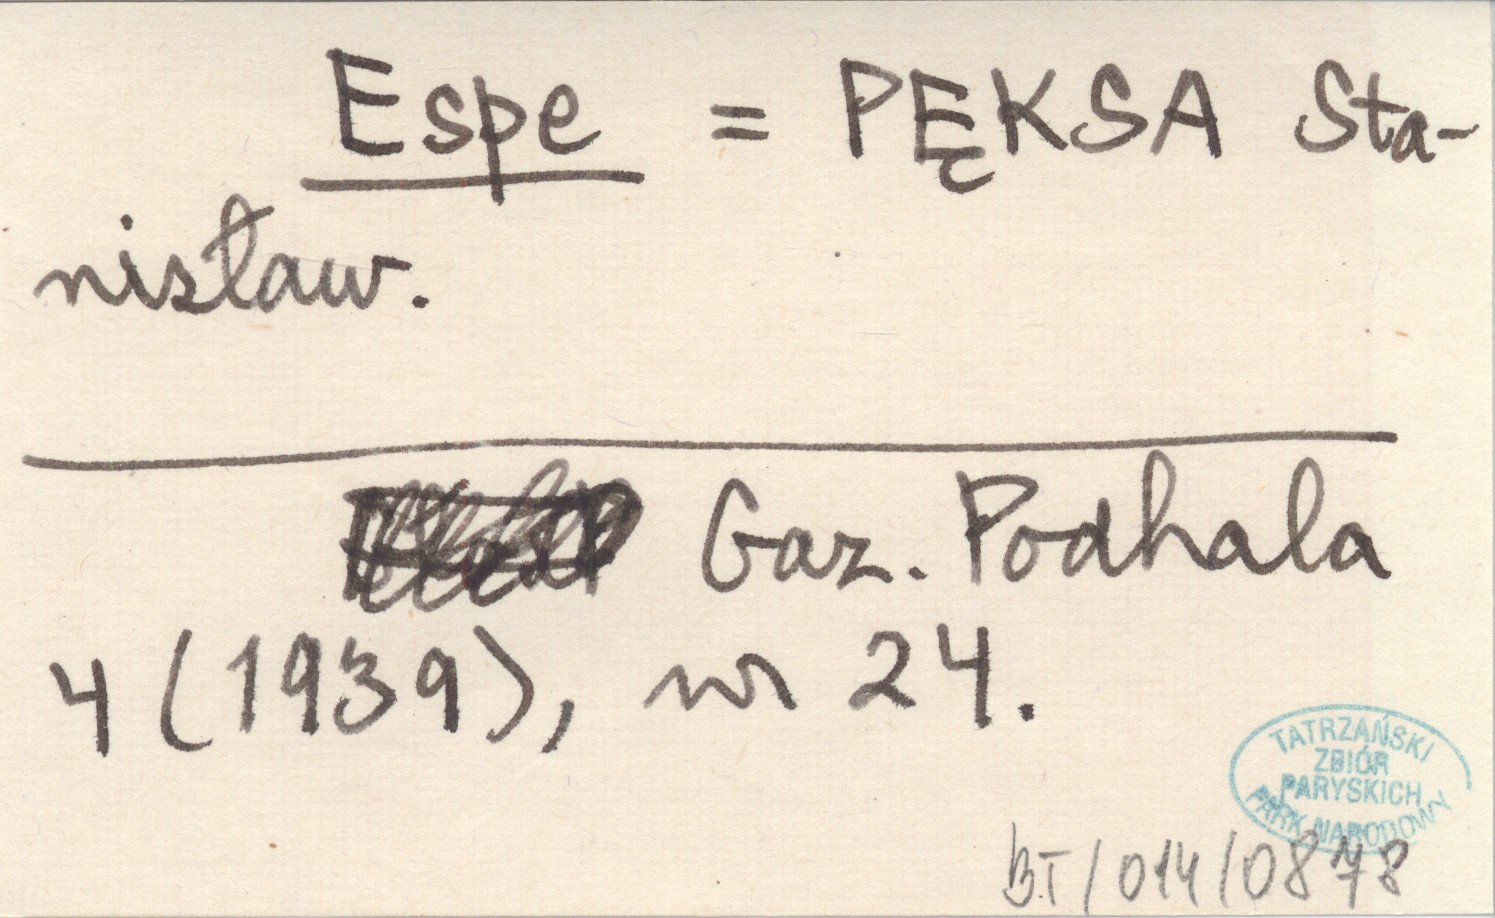 Espe = PĘKSA Sta-
nisław.
Gaz. Podhala
4 (1939), nr 24.
TATRZAŃSKI
ZBIÓR
PARYSKICH
PARK NARODOWY
B.T/014/0878